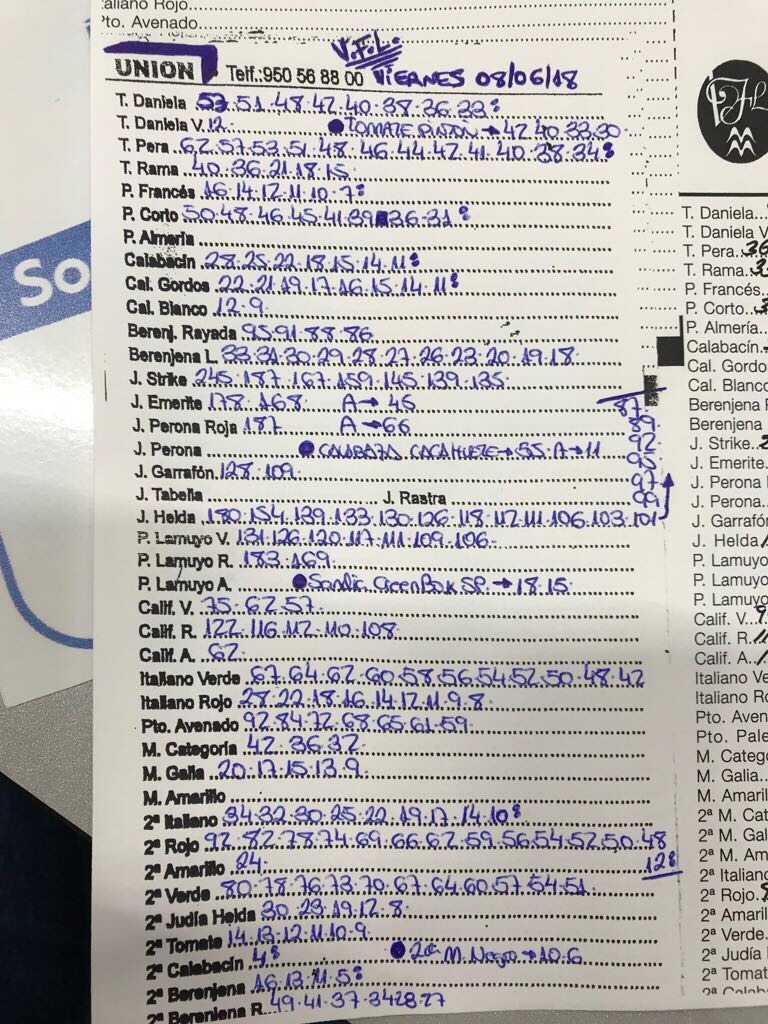 aliano Rojo
Pto. Avenado
V.F.L.
UNION Telf.:950 56 88 00 VIERNES 08/06/18
T. Daniela 53.51.48.42.40.38.36.33:
T. Daniela V. 12. ● TOMATE PINTON → 42 40.33.30
T. Pera 62.57.53.51.48.46.44.42.41.40.38.34:
T. Rama 40.36.21.18.15
P. Francés 16.14.12.11.10.7:
P. Corto 50.48.46.45.41.39.36.31:
P. Almería
Calabacín 28.25.22.18.15.14.11:
Cal. Gordos 22.21.19.17.16.15.14.11:
Cal. Blanco 12.9.
Berenj. Rayada 95.91.88.86
Berenjena L. 33.31.30.29.28.27.26.23.20.19.18
J. Strike 245.187.167.159.145.139.135
J. Emerite 178.168. A→ 45
J. Perona Roja 187 A→66
J. Perona ● CALABAZA CACAHUETE→55.A→11
J. Garrafón 128.109
J. Tabella J. Rastra
J. Helda 180.154.139.133.130.126.118.112.111.106.103.101
87
89
92
95
97
99
P. Lamuyo V. 131.126.120.117.111.109.106
P. Lamuyo R. 183.169
P. Lamuyo A. ● Sandia Green Box SP. → 18.15
Calif. V. 75.62.57
Calif. R. 122.116.112.110.108
Calif. A. 62
Italiano Verde 67.64.62.60.58.56.54.52.50.48.42
Italiano Rojo 28.22.18.16.14.12.11.9.8
Pto. Avenado 92.84.72.68.65.61.59
M. Categoría 42.36.32
M. Galia 20.17.15.13.9
M. Amarillo
2ª Italiano 34.32.30.25.22.19.17.14.10:
2ª Rojo 92.82.78.74.69.66.62.59.56.54.52.50.48
12:
2ª Amarillo 24
2ª Verde 80.78.76.73.70.67.64.60.57.54.51
2ª Judía Helda 30.23.19.12.8
2ª Tomate 14.13.12.11.10.9
2ª Calabacín 4: ● 2ª M. Negro → 10.6
2ª Berenjena 16.13.11.5:
2ª Berenjena R. 49.41.37.34.28.27
So
T. Daniela
T. Daniela V
T. Pera 36
T. Rama 3
P. Francés
P. Corto
P. Almería
Calabacín
Cal. Gordo
Cal. Blanco
Berenjena R
Berenjena
J. Strike 2
J. Emerite
J. Perona
J. Perona
J. Garrafó
J. Helda
P. Lamuyo
P. Lamuyo
P. Lamuyo
Calif. V. 9
Calif. R.
Calif. A.
Italiano Ve
Italiano Ro
Pto. Aven
Pto. Pale
M. Catego
M. Galia
M. Amaril
2ª M. Cat
2ª M. Gal
2ª M. Am
2ª Italiano
2ª Rojo
2ª Amaril
2ª Verde
2ª Judía
2ª Tomat
2ª Calaba